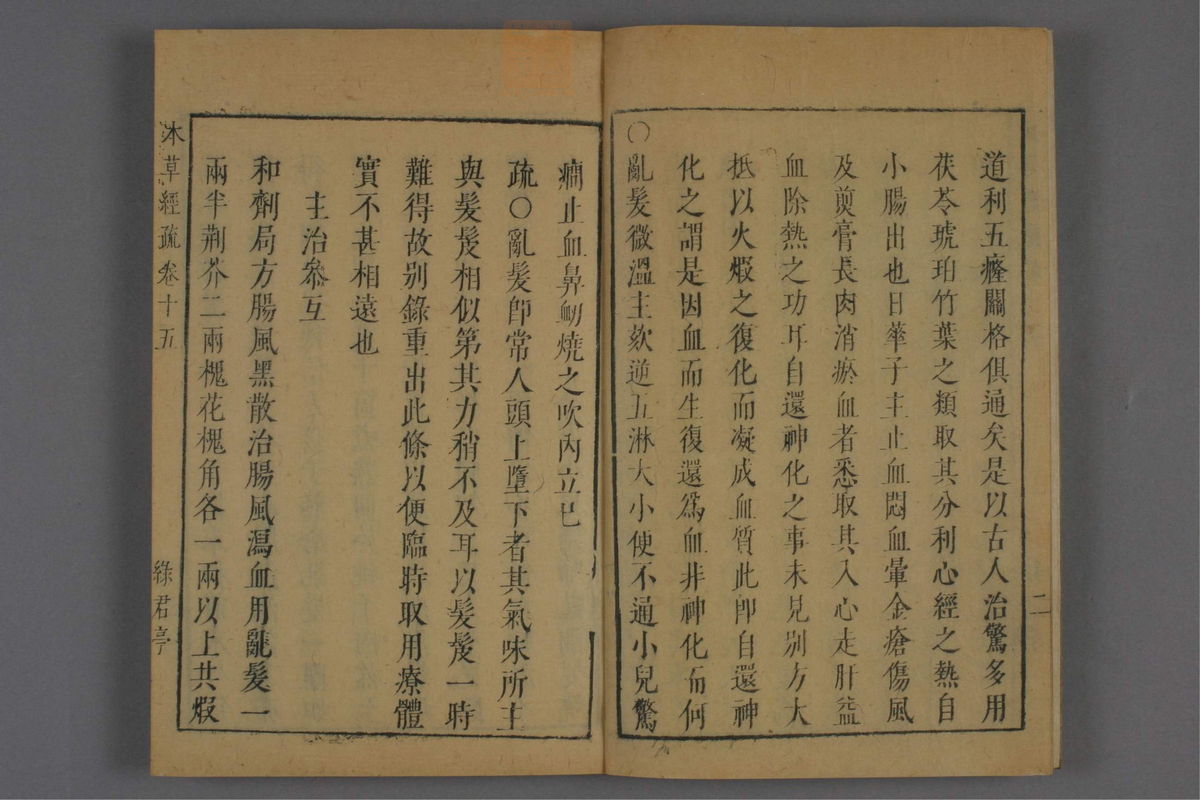 道利五癃關格俱通矣是以古人治驚多用
茯苓琥珀竹葉之類取其分利心經之熱自
小腸出也日華子主止血悶血暈金瘡傷風
及煎膏長肉消瘀血者悉取其入心走肝益
血除熱之功耳自還神化之事未見别方大
抵以火煅之復化而凝成血質此即自還神
化之謂是因血而生復還爲血非神化而何
○亂髮微溫主欬逆五淋大小便不通小兒驚
癇止血鼻衂燒之吹內立已
疏○亂髮卽常人頭上墮下者其氣味所主
與髮髲相似第其力稍不及耳以髮髲一時
難得故别錄重出此條以便臨時取用療體
實不甚相遠也
主治叅互
和劑局方腸風黑散治腸風瀉血用亂髮一
兩半荆芥二兩槐花槐角各一兩以上共煅
本草經疏 卷十五
綠君亭
二